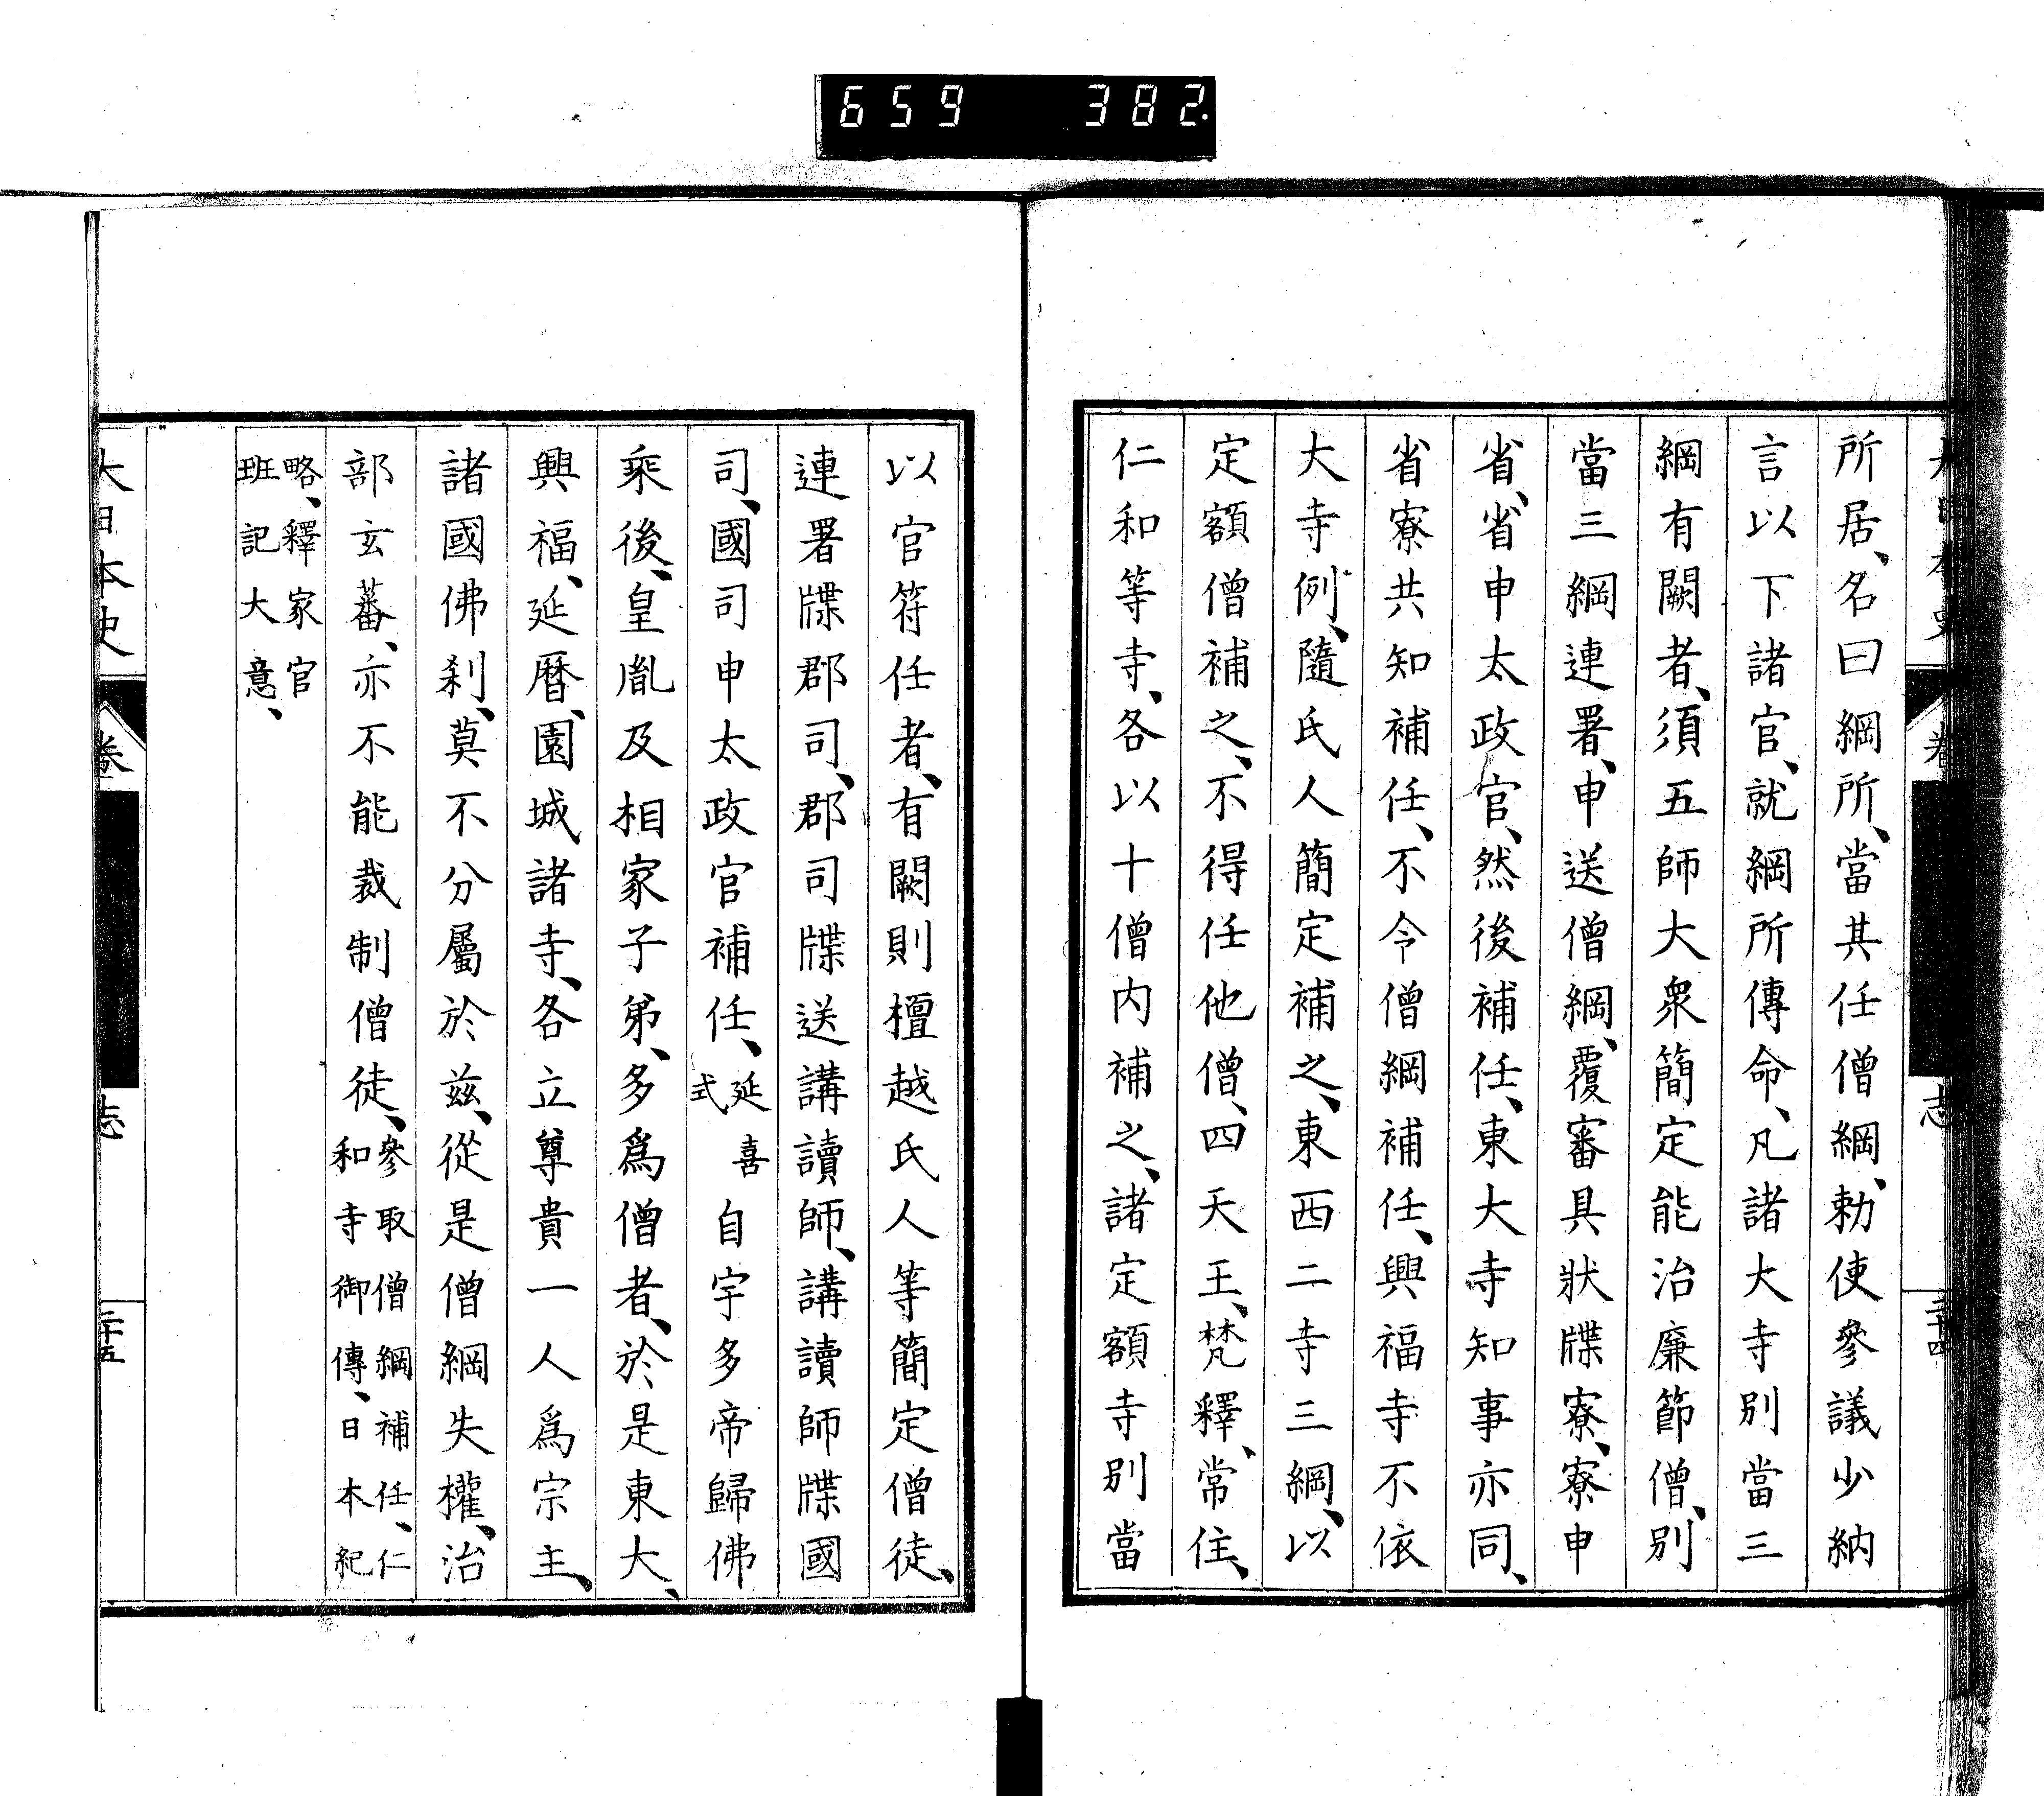 659 382
所居、名曰綱所、當其任僧綱、勅使參議少納
言以下諸官、就綱所傳命、凡諸大寺別當三
綱有闕者、須五師大衆簡定能治廉節僧、別
當三綱連署、申送僧綱、覆審具狀牒寮、寮申
省、省申太政官、然後補任、東大寺知事亦同、
省寮共知補任、不令僧綱補任、興福寺不依
大寺例、隨氏人簡定補之、東西二寺三綱、以
定額僧補之、不得任他僧、四天王、梵釋、常住、
仁和等寺、各以十僧内補之、諸定額寺別當
以官符任者、有闕則檀越氏人等簡定僧徒、
連署牒郡司、郡司牒送講讀師、講讀師牒國
司、國司申太政官補任、延喜式自宇多帝歸佛
乘後、皇胤及相家子弟、多爲僧者、於是東大、
興福、延暦、園城諸寺、各立尊貴一人爲宗主、
諸國佛刹、莫不分屬於兹、從是僧綱失權、治
部玄蕃、亦不能裁制僧徒、參取僧綱補任、仁和寺御傳、日本紀
略、釋家官班記大意、
大日本史 卷 志 二十五